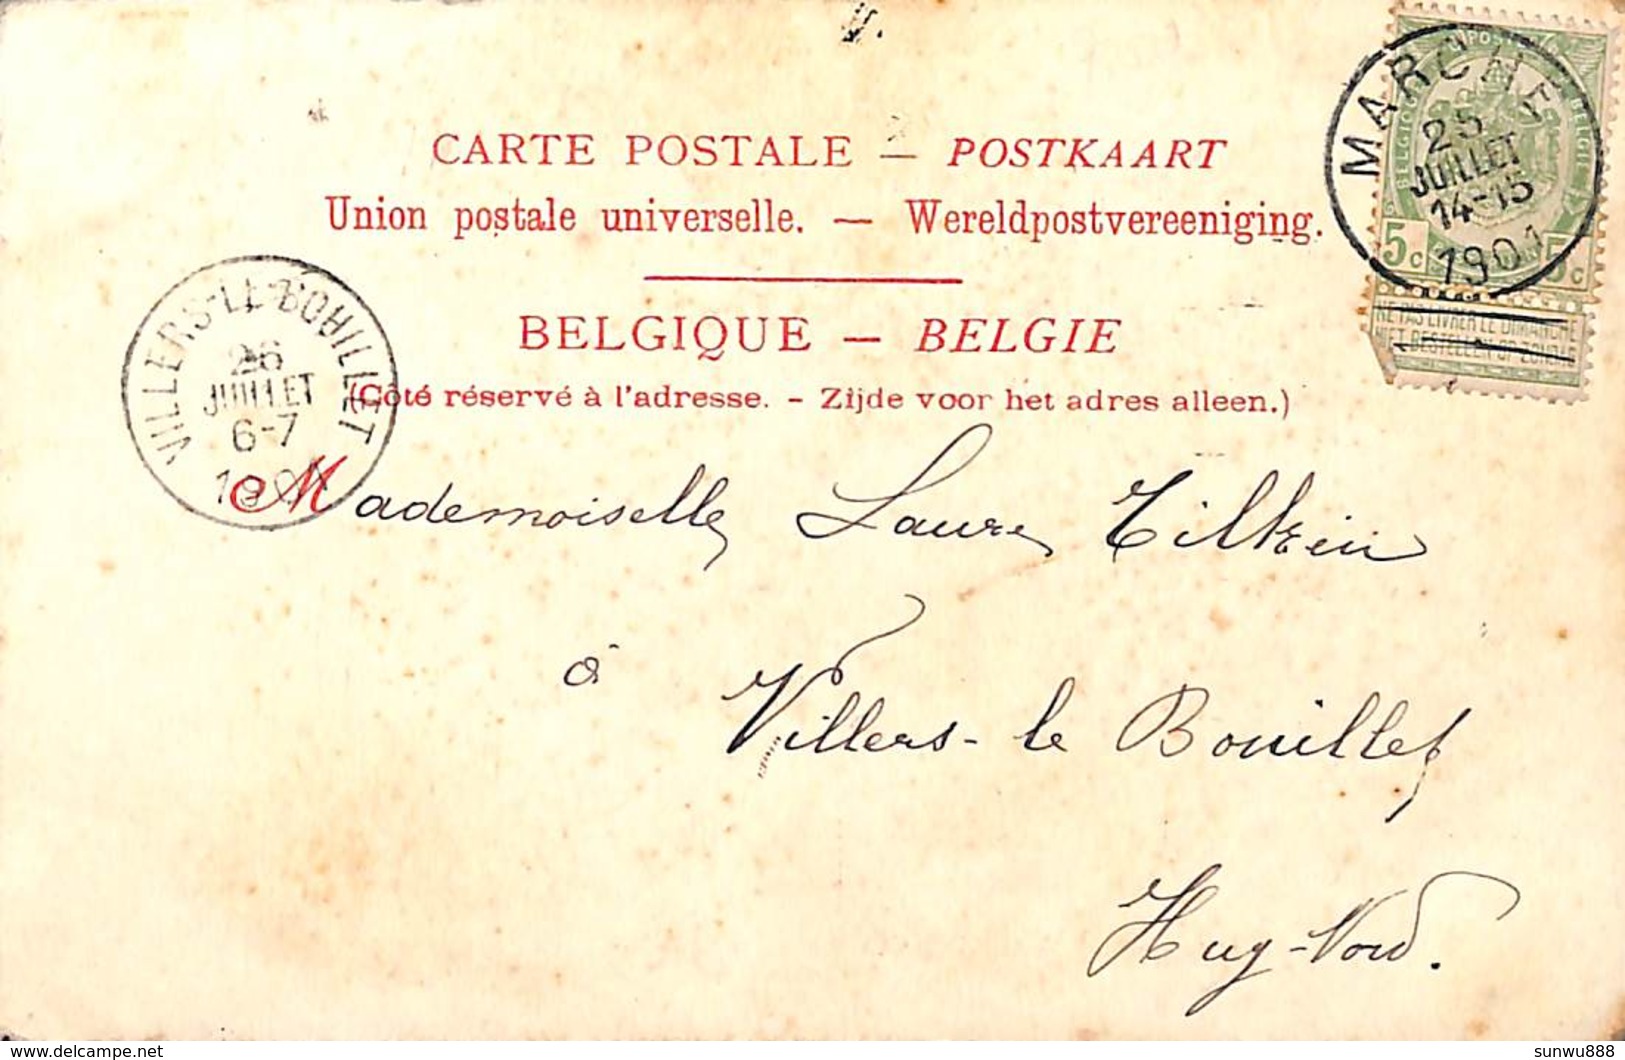 CARTE POSTALE — POSTKAART
Union postale universelle. — Wereldpostvereeniging.
BELGIQUE — BELGIE
(Côté réservé à l'adresse. - Zijde voor het adres alleen.)
MARCHE
25
JUILLET
14-15
1901
BELGIQUE
BELGIË
5c 5c
NE PAS LIVRER LE DIMANCHE
NIET BESTELLEN OP ZONDAG
VILLERS-LE-BOUILLET
26
JUILLET
6-7
Mademoiselle Laure Tilkin
à
Villers-le Bouillet
Huy-Nord.
delcampe.net
sunwu888